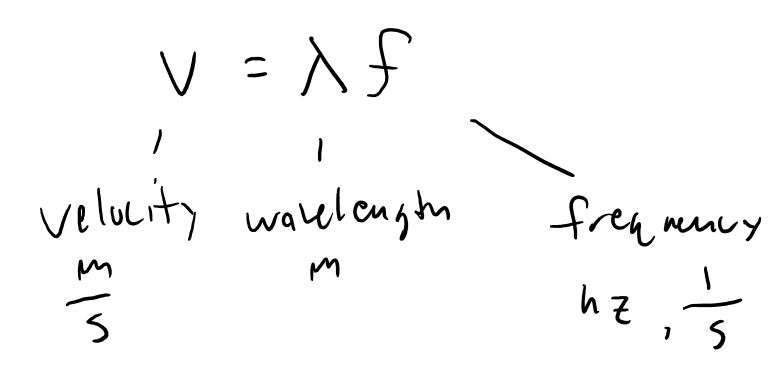 v = λf
velocity wavelength frequency
m/s m hz, 1/s